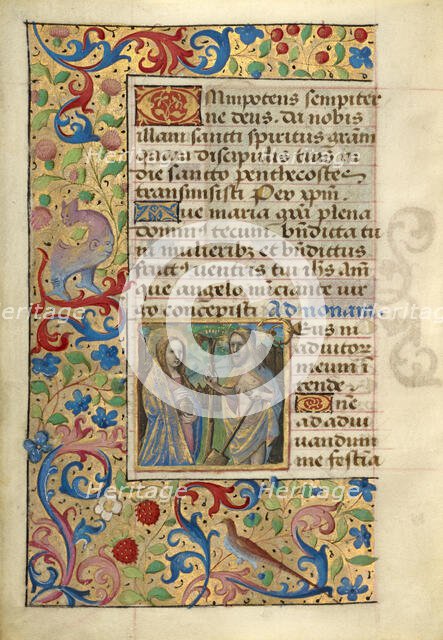 Omnipotens sempiter
ne deus. da nobis
illam sancti spiritus gram
discipulis
die sancto penthecostes
transmisisti Per xpm.
Aue maria gra plena
dominus tecum. bndicta tu
in mulieribz et bndictus
fruct ventris tui ihs am
que angelo nunciante vir
go concepisti Ad nonam
Deus in
adiutor
meum in
tende
Dne
ad adiu
uandum
me festina
Heritage
Heritage
Heritage
Heritage
Heritage
Heritage